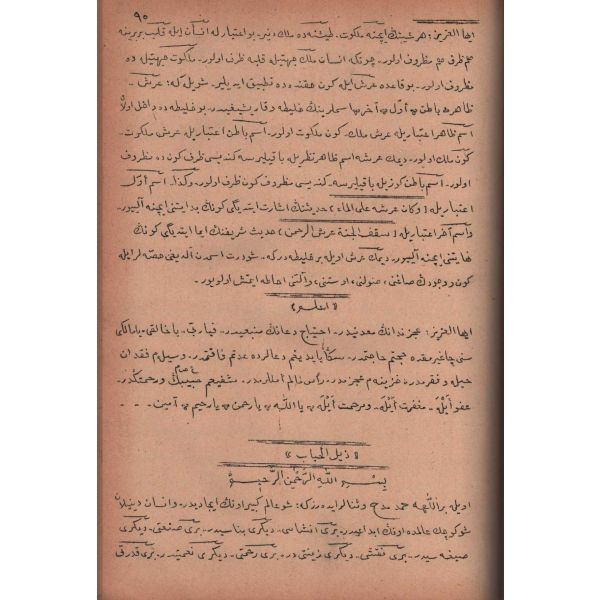 ٩٠
ايها العزيز؛ هر شيئك ايچنه ملكوت، طيشنه ده ملك دينير. بو اعتبار له انسان ايله قلب بربرينه
هم ظرف هم مظروف اولور. چونكه انسان ملك جهتيله قلبه ظرف اولور. ملكوت جهتيله ده
مظروف اولور. بو قاعده عرش ايله كون حقنده ده تطبيق ايديلير. شويل كه: عرش -
ظاهر، باطن، أول، آخر، اسملرينك خليطه و قاريشيغيدر. بو خليطه ده داخل اولان
اسم ظاهر اعتباريله عرش ملك، كون ملكوت اولور. اسم باطن اعتباريله عرش ملكوت -
كون ملك اولور. ديمك عرشه اسم ظاهر نظريله باقيليرسه كنديسى ظرف كون ده مظروف
اولور. اسم باطن كوزيله باقيليرسه كنديسى مظروف كون ظرف اولور. وكذا. اسم أول
اعتباريله [وكان عرشه على الماء] حديثنك اشارت ايتديگى كونك بدايتنى ايچنه آليور.
و اسم آخر اعتباريله [سقف الجنة عرش الرحمن] حديث شريفنك ايما ايتديگى كونك
نهايتنى ايچنه آليور. ديمك عرش اويله بر خليطه دركه. شو درت اسمدن آلديغى حصه لر ايله
كون و وجودك صاغنى، صولنى، اوستنى، و آلتنى احاطه ايتمش اولويور.
«اعلم»
ايها العزيز: عجز ندانك معدنيدر. احتياج دعانك منبعيدر. فيا ربى، يا خالقى، يا مالكى
سنى چاغيرمقده حجتم حاجتمدر. سكا يابديغم دعالرده عدتم فاقتمدر. وسيله م فقدان
حيله و فقرمدر. خزينه م عجزمدر. رأس مالم أمللرمدر. شفيعم حبيبك و رحمتكدر.
عفو أيله - مغفرت أيله - و مرحمت أيله، يا الله، يا رحمن، يا رحيم، آمين. - - -
«ذيل الحباب»
بسم الله الرحمن الرحيم
اويله بر اللهه حمد مدح و ثنالر ايده رزكه: شو عالم كبير اونك ايجاديدر. و انسان دينيلن
شو كوچك عالمده اونك ابداعيدر. برى انشاسى - ديگرى بناسيدر. برى صنعتى - ديگرى
صبغه سيدر. برى نقشى - ديگرى زينتى در. برى رحمتى - ديگرى نعمتيدر. برى قدرتى